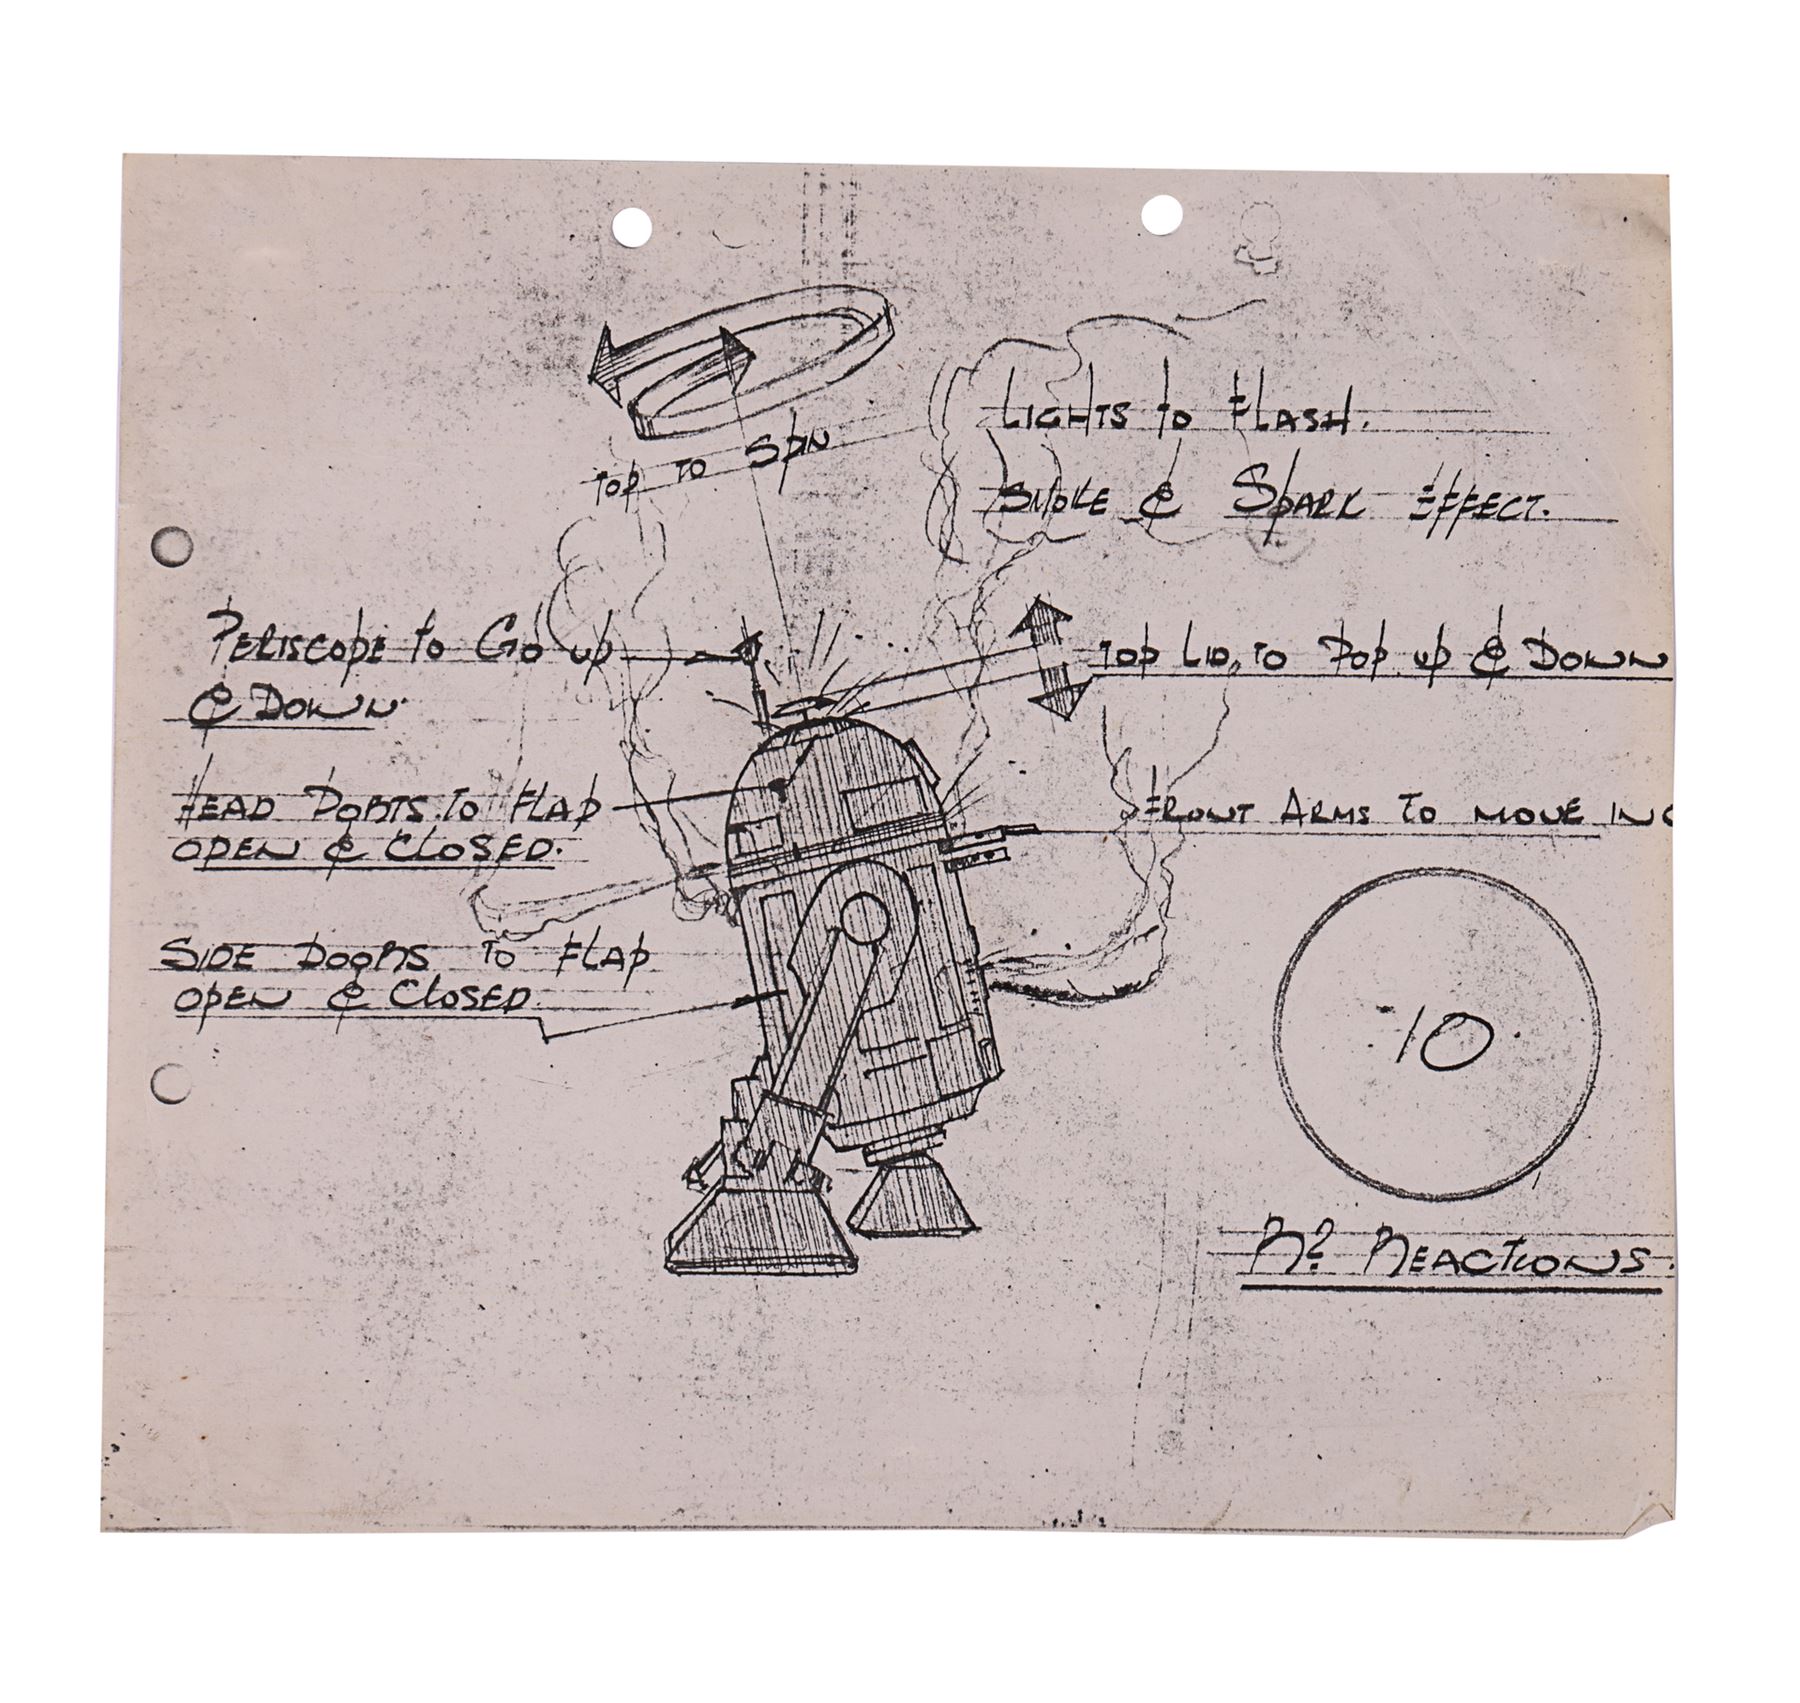 TOP TO SPIN
LIGHTS TO FLASH.
SMOKE & SPARK EFFECT.
PERISCOPE TO GO UP
& DOWN.
TOP LID, TO POP UP & DOWN
HEAD PORTS TO FLAP
OPEN & CLOSED.
FRONT ARMS TO MOVE IN &
SIDE DOORS TO FLAP
OPEN & CLOSED.
10
R2 REACTIONS.